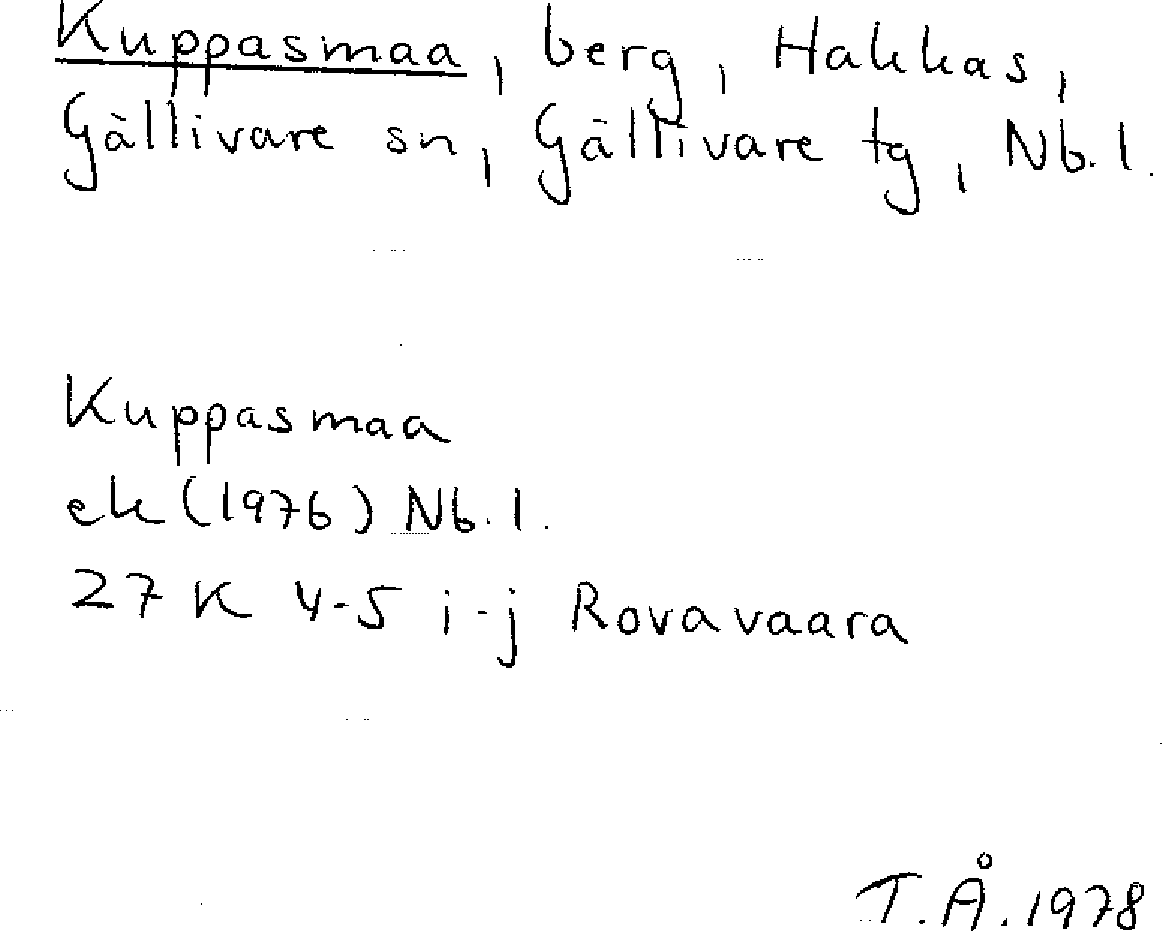 Kuppasmaa, berg, Hakkas,
Gällivare sn, Gällivare tg, Nb. l.
Kuppasmaa
ek (1976) Nb. l.
27 K 4-5 i-j Rovavaara
T.Å. 1978